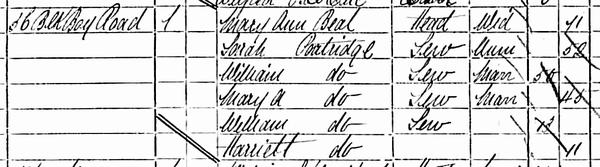 56 Blk Boy Road 1 Mary Ann Beal Head Wid 71
Sarah Partridge Serv Unm 52
William do Serv Marr 50
Mary A do Serv Marr 45
William do Serv 13
Harriett do 11